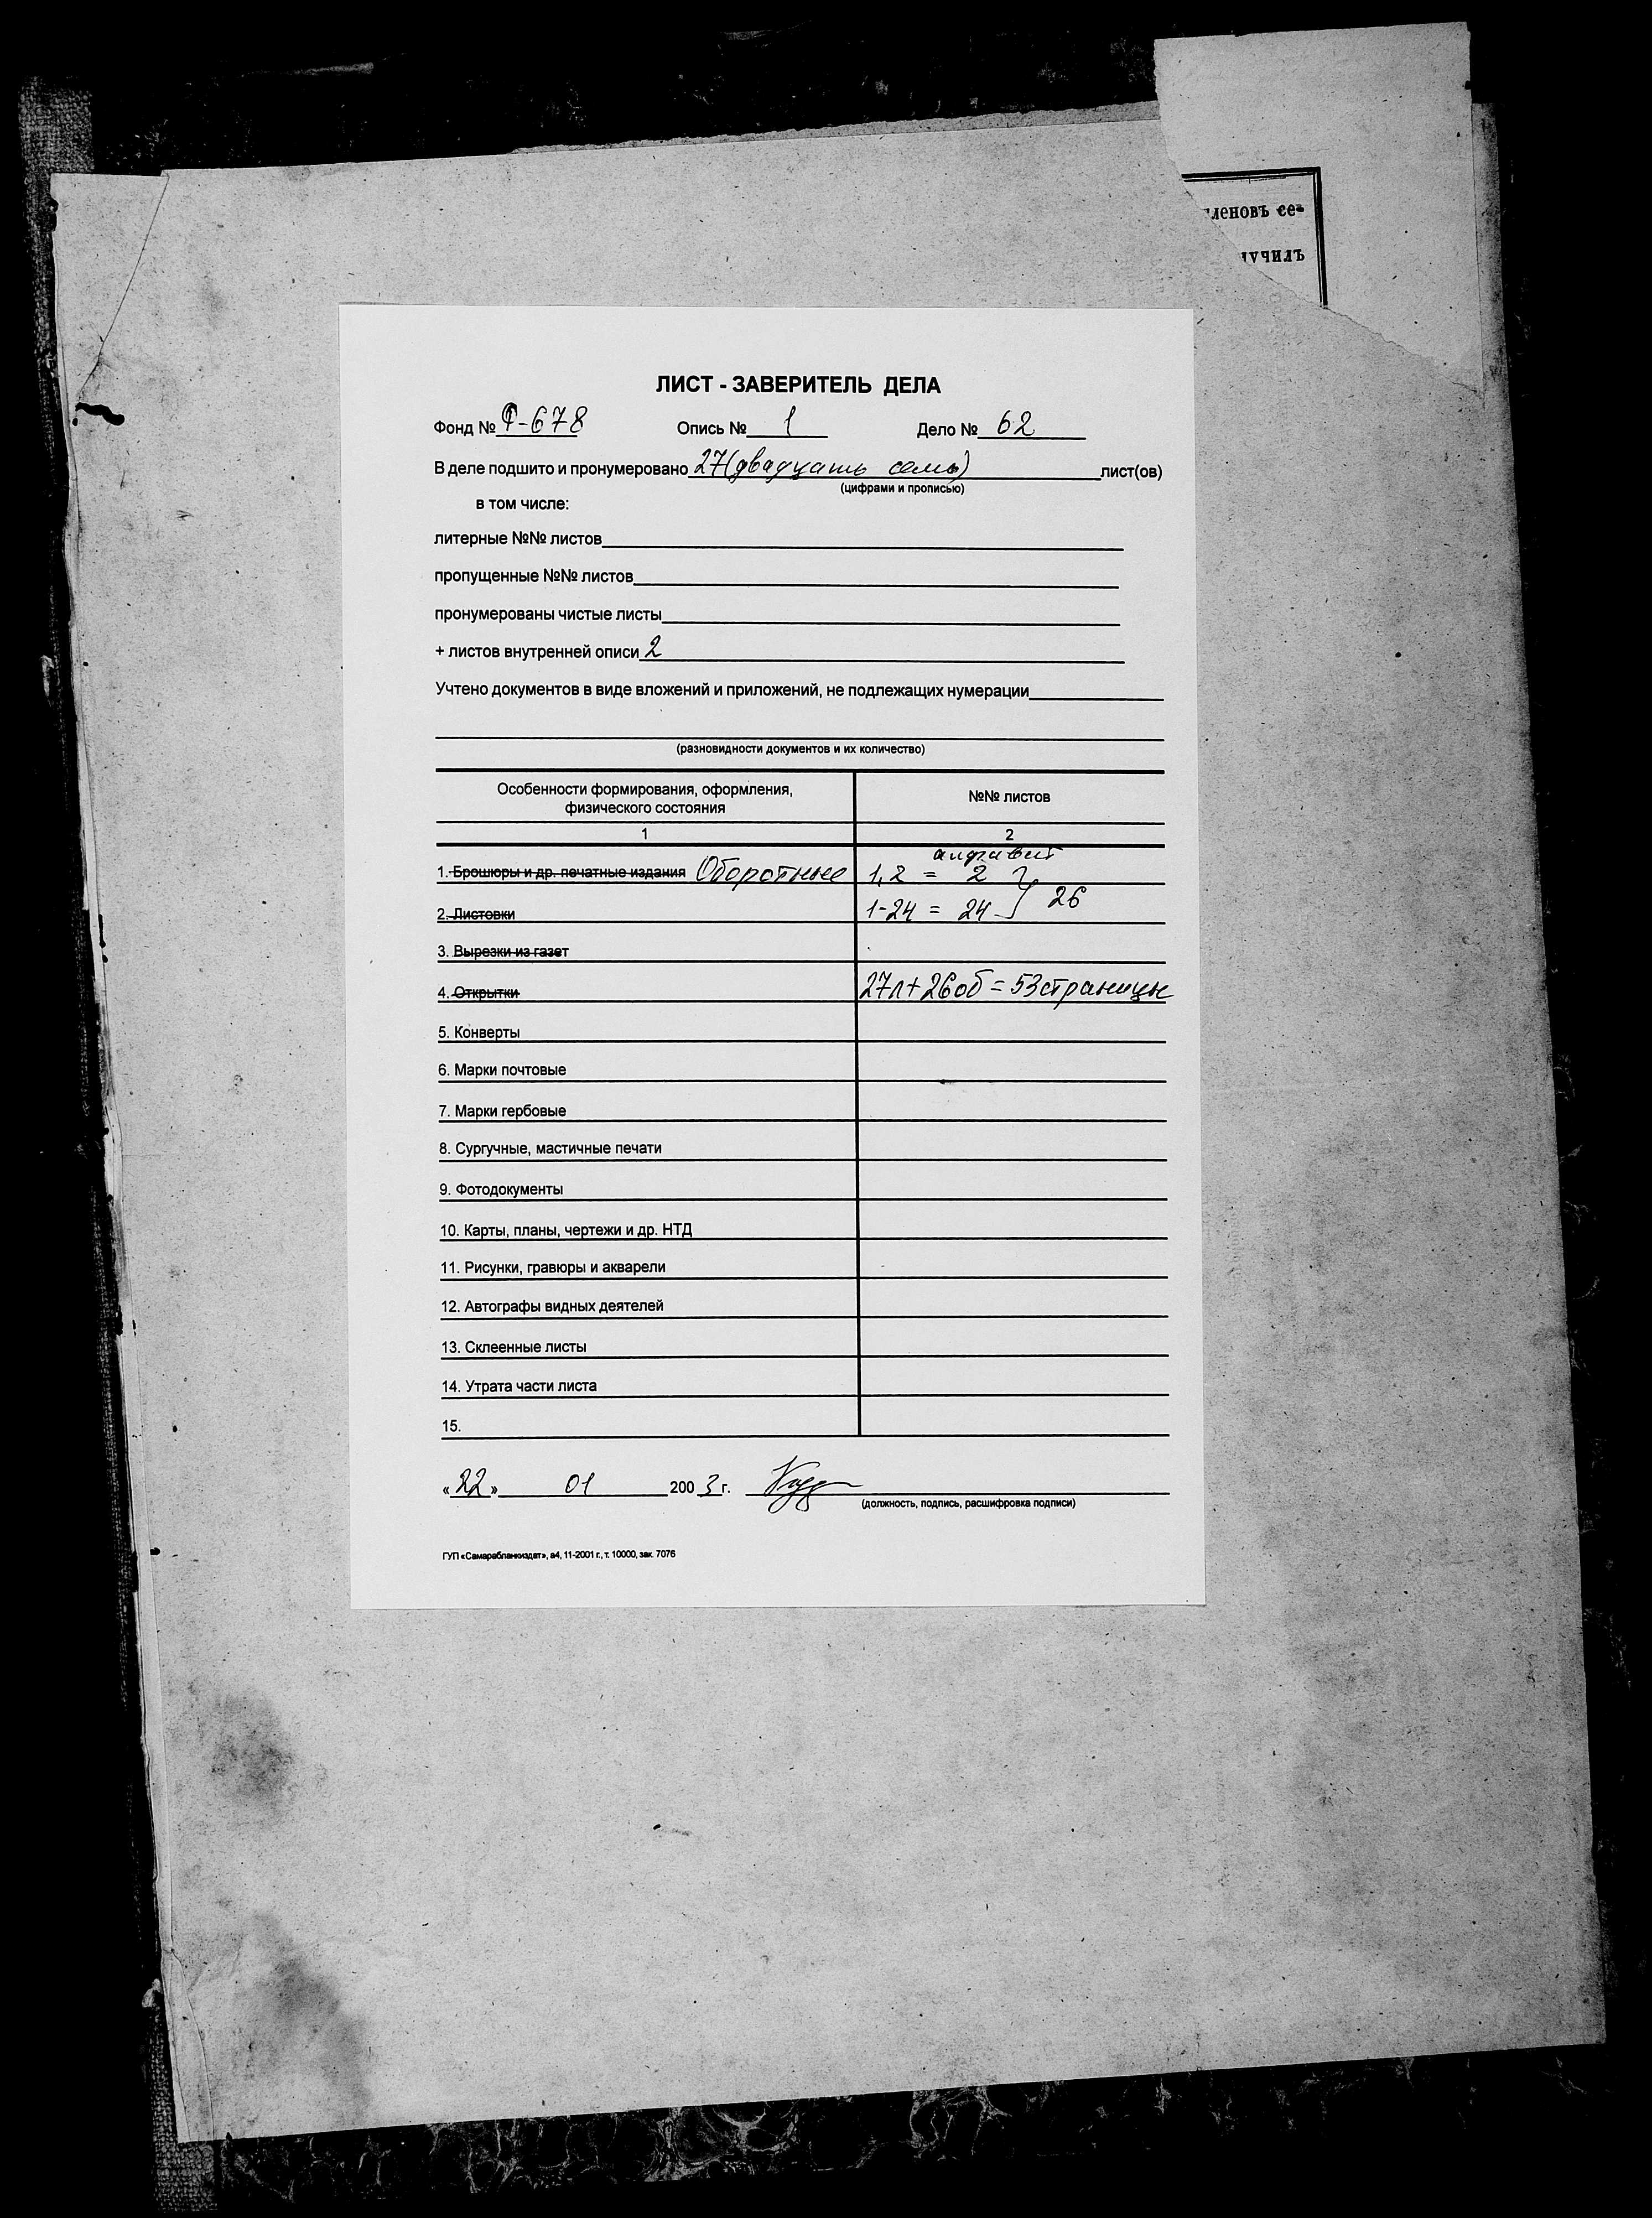 членовъ се-
училъ
ЛИСТ - ЗАВЕРИТЕЛЬ ДЕЛА
Фонд № Ф-678 Опись № 1 Дело № 62
В деле подшито и пронумеровано 27 (двадцать семь) лист(ов)
(цифрами и прописью)
в том числе:
литерные №№ листов
пропущенные №№ листов
пронумерованы чистые листы
+ листов внутренней описи 2
Учтено документов в виде вложений и приложений, не подлежащих нумерации
(разновидности документов и их количество)
Особенности формирования, оформления, физического состояния №№ листов
1 2
алфавит
1. Брошюры и др. печатные издания Оборотные 1,2 = 2
2. Листовки 1-24 = 24 } 26
3. Вырезки из газет
4. Открытки 27л + 26об = 53 страницы
5. Конверты
6. Марки почтовые
7. Марки гербовые
8. Сургучные, мастичные печати
9. Фотодокументы
10. Карты, планы, чертежи и др. НТД
11. Рисунки, гравюры и акварели
12. Автографы видных деятелей
13. Склеенные листы
14. Утрата части листа
15.
«22» 01 2003 г.
(должность, подпись, расшифровка подписи)
ГУП «Самарабланкиздат», а4, 11-2001 г., т. 10000, зак. 7076